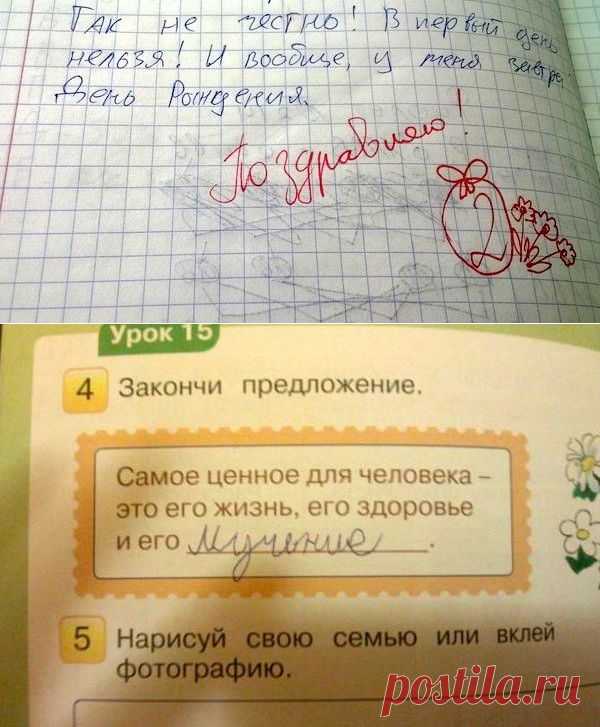 Так не честно! В первый день
нельзя! И вообще, у меня завтра
День Рождения.
Поздравляю!
2
Урок 15
4 Закончи предложение.
Самое ценное для человека –
это его жизнь, его здоровье
и его мучение.
5 Нарисуй свою семью или вклей
фотографию.
postila.ru